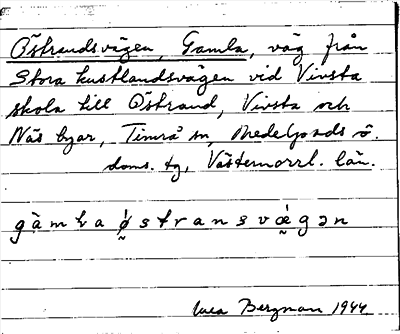 Östrandsvägen, Gamla, väg från
Stora kustlandsvägen vid Vivsta
skola till Östrand, Vivsta och
Näs byar, Timrå sn, Medelpads ö.
doms. tg, Västernorrl. län.
Bergman 1944